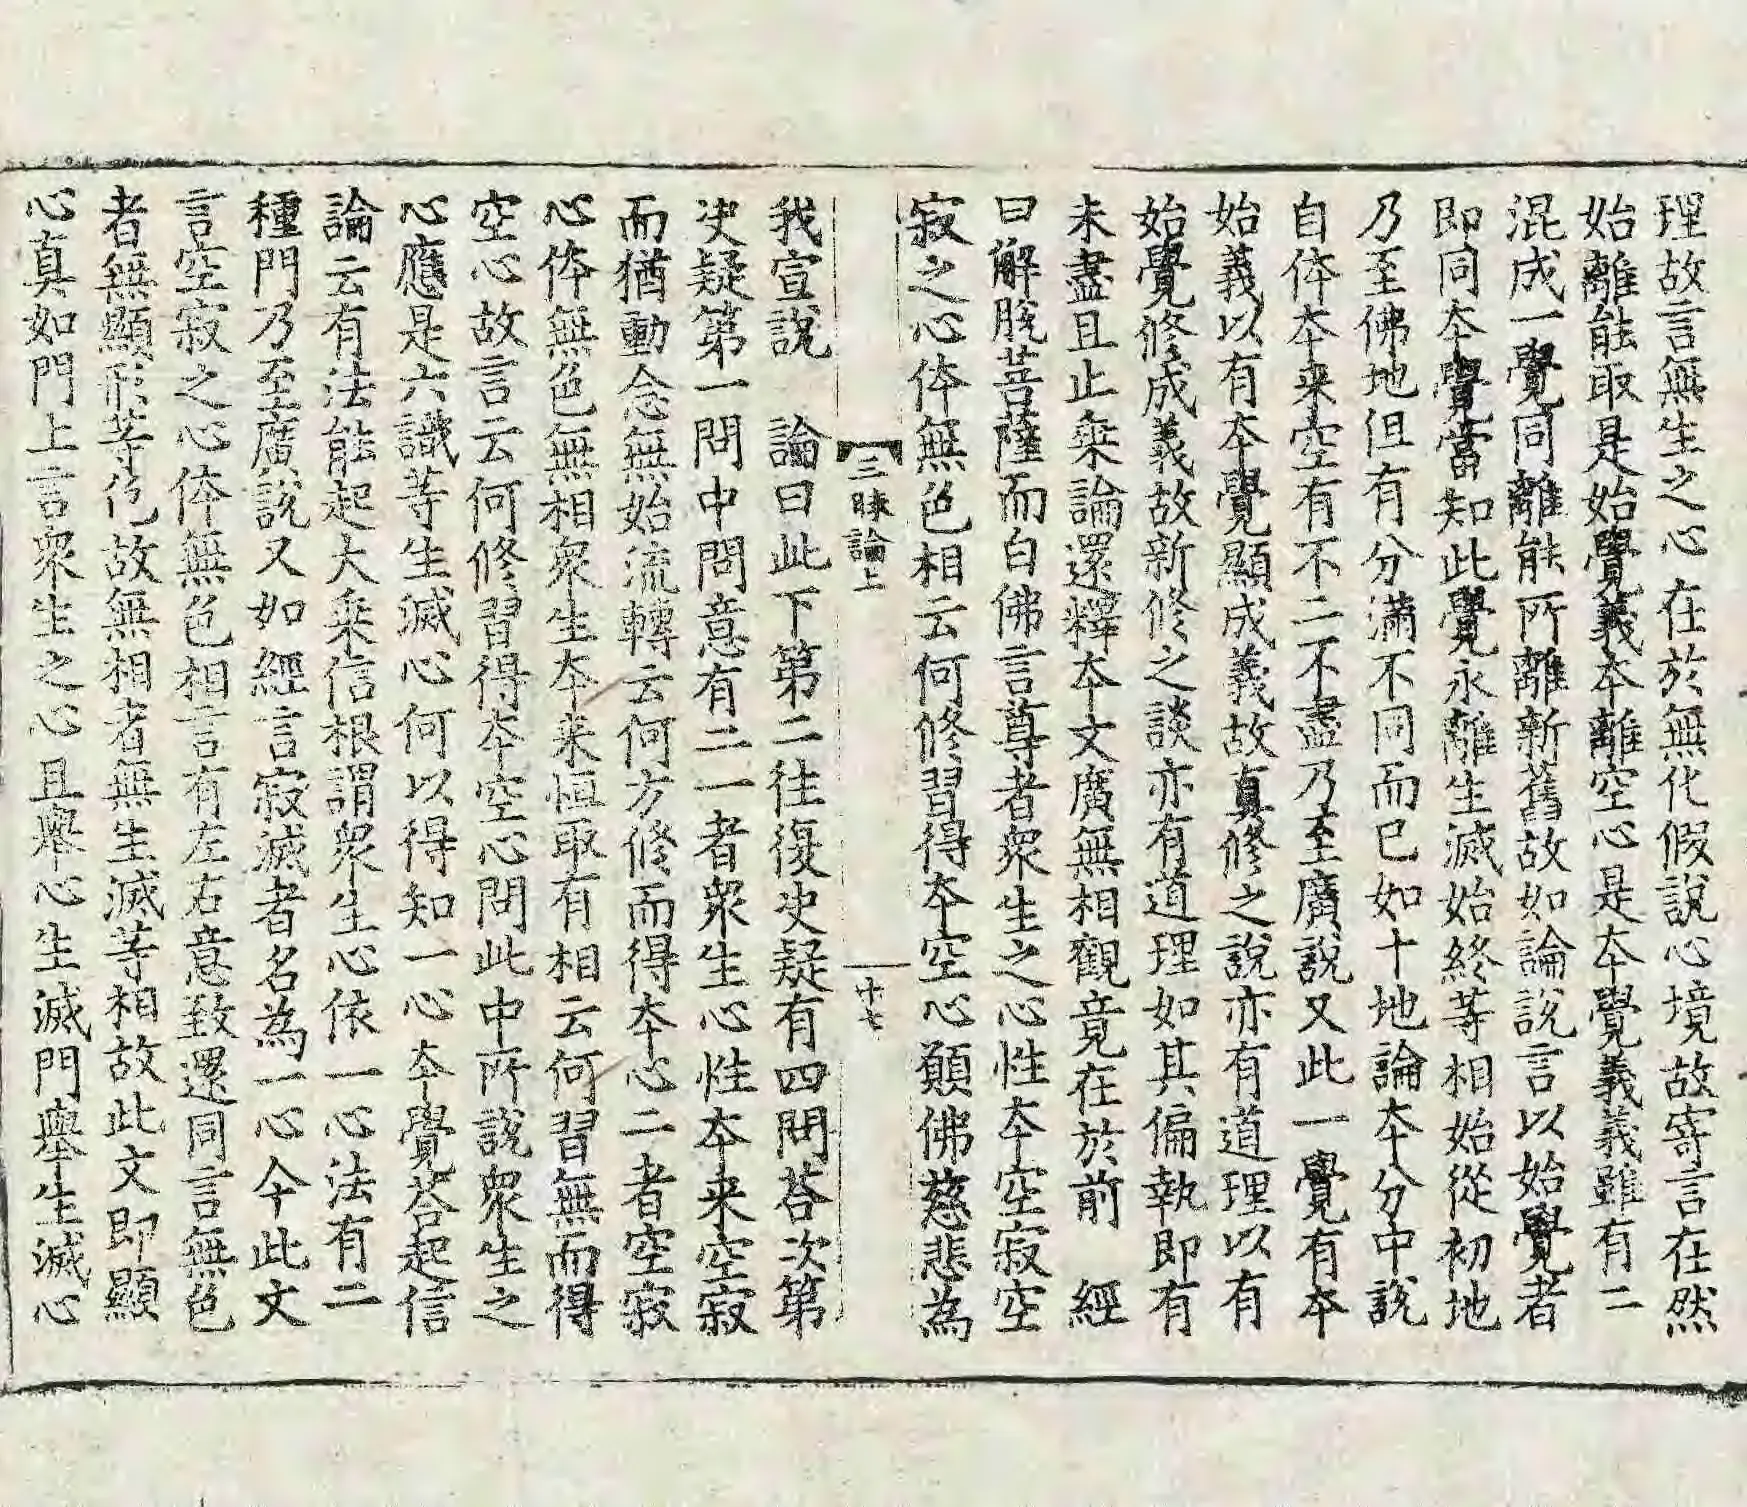 理故言無生之心 在於無化假說心境故寄言在然
始離能取是始覺義本離空心是本覺義義雖有二
混成一覺同離能所離新舊故如論說言以始覺者
即同本覺當知此覺永離生滅始終等相始從初地
乃至佛地但有分滿不同而已如十地論本分中說
自体本来空有不二不盡乃至廣說又此一覺有本
始義以有本覺顯成義故真修之說亦有道理以有
始覺修成義故新修之談亦有道理如其偏執即有
未盡且止乗論還釋本文廣無相觀竟在於前 經
曰解脫菩薩而白佛言尊者衆生之心性本空寂空
寂之心体無色相云何修習得本空心願佛慈悲為
三昧論上 十七
我宣說 論曰此下第二往復决疑有四問荅次第
决疑第一問中問意有二一者衆生心性本来空寂
而猶動念無始流轉云何方修而得本心二者空寂
心体無色無相衆生本来恒取有相云何習無而得
空心故言云何修習得本空心問此中所說衆生之
心應是六識等生滅心何以得知一心本覺荅起信
論云有法能起大乗信根謂衆生心依一心法有二
種門乃至廣說又如經言寂滅者名為一心今此文
言空寂之心体無色相言有左右意致還同言無色
者無顯形等色故無相者無生滅等相故此文即顯
心真如門上言衆生之心且舉心生滅門舉生滅心